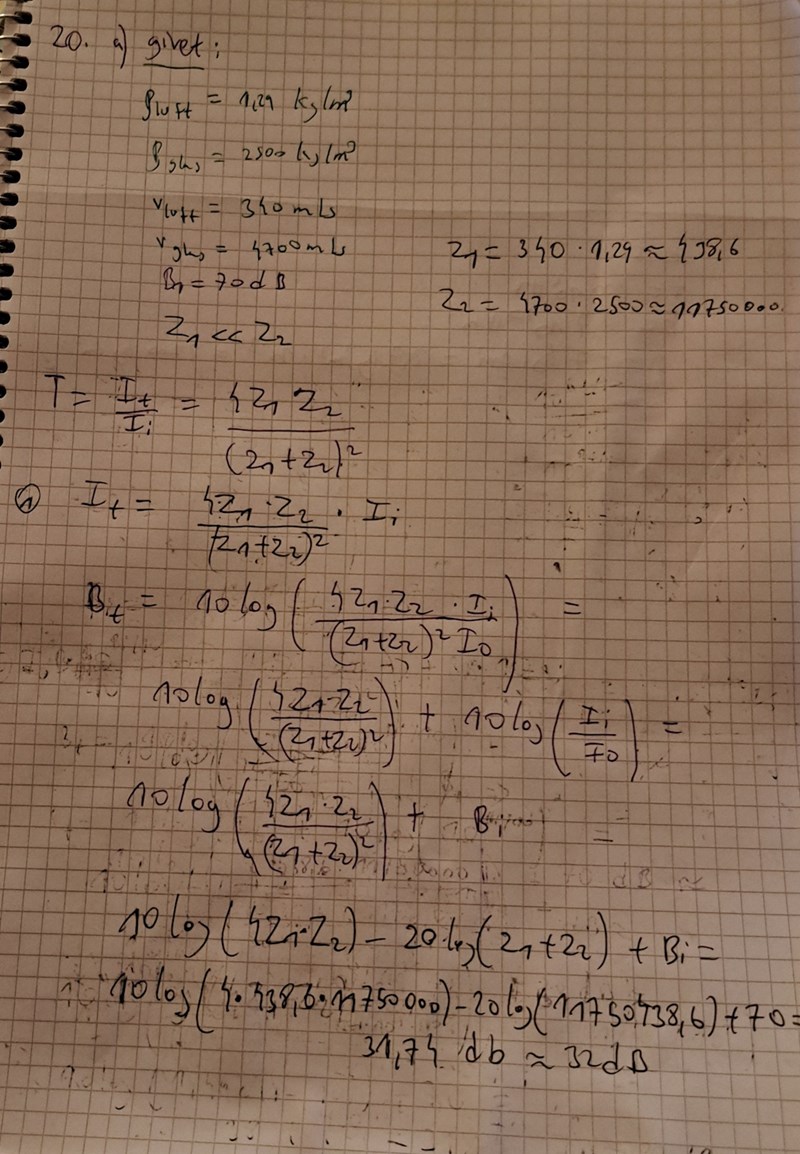 20. a) givet:
ρluft = 1,29 kg/m³
ρglas = 2500 kg/m³
vluft = 340 m/s
vglas = 4700 m/s Z1 = 340 · 1,29 ≈ 438,6
B1 = 70 dB Z2 = 4700 · 2500 ≈ 11750000
Z1 << Z2
T = It/Ii = 4Z1 Z2/(Z1+Z2)²
① It = 4Z1·Z2/(Z1+Z2)² · Ii
Bt = 10 log(4Z1·Z2 · Ii/(Z1+Z2)² I0) =
10log(4Z1·Z2/(Z1+Z2)²) + 10log(Ii/I0) =
10log(4Z1·Z2/(Z1+Z2)²) + Bi =
10log(4Z1·Z2) - 20log(Z1+Z2) + Bi =
10log(4·438,6·11750000) - 20log(11750438,6) + 70 =
31,74 db ≈ 32dB